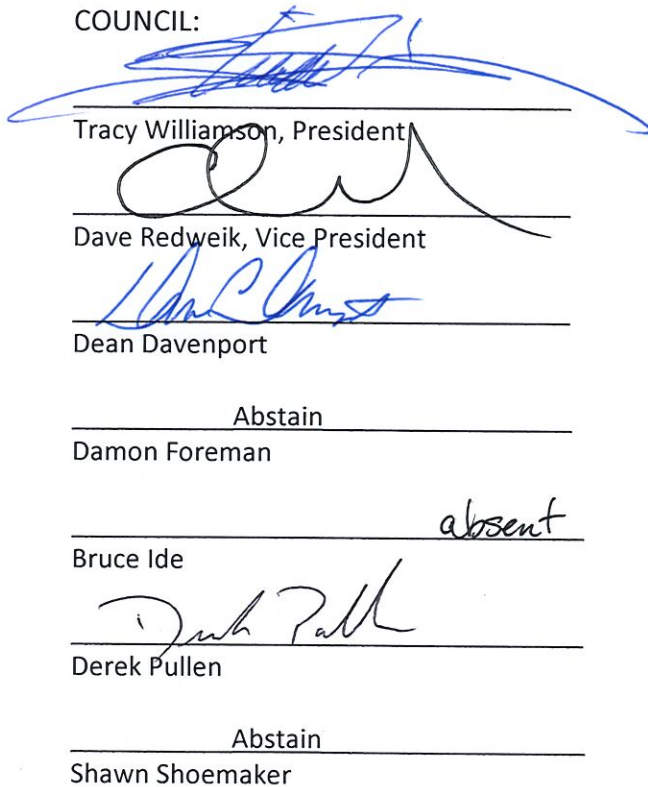 COUNCIL:
Tracy Williamson, President
Dave Redweik, Vice President
Dean Davenport
Abstain
Damon Foreman
absent
Bruce Ide
Derek Pullen
Abstain
Shawn Shoemaker